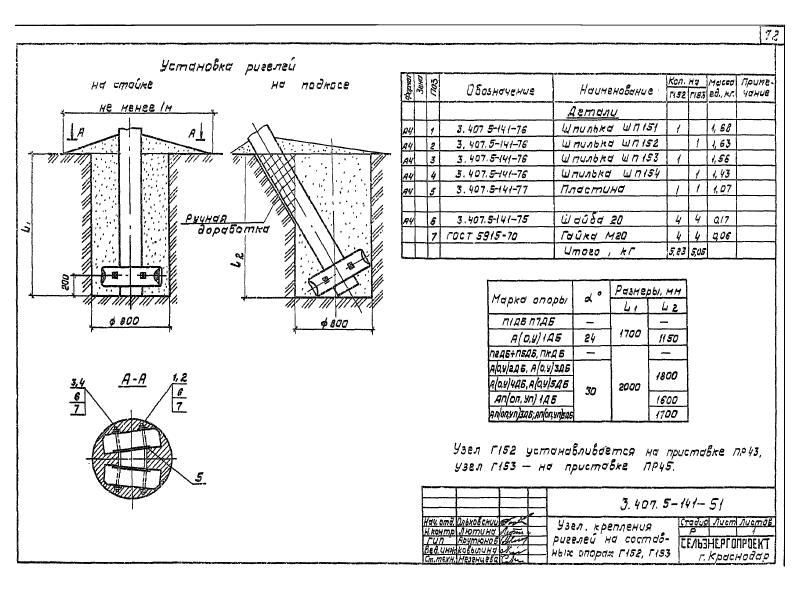 72
Установка ригелей
на стойке
на подкосе
не менее 1м
А А
Ручная
доработка
L1
L2
200
ϕ800
ϕ800
А-А
3,4
6
7
1,2
6
7
5
Формат Зона Поз. Обозначение Наименование Кол. на Масса ед., кг. Приме-чание
Г152 Г153
Детали
А4 1 3.407.5-141-76 Шпилька ШП151 1 1,68
А4 2 3.407.5-141-76 Шпилька ШП152 1 1,63
А4 3 3.407.5-141-76 Шпилька ШП153 1 1,56
А4 4 3.407.5-141-76 Шпилька ШП154 1 1,43
А4 5 3.407.5-141-77 Пластина 1 1 1,07
А4 6 3.407.5-141-75 Шайба 20 4 4 0,17
7 ГОСТ 5915-70 Гайка М20 4 4 0,06
Итого, кг 5,23 5,05
Марка опоры α° Размеры, мм
L1 L2
П1ДБ П7ДБ — 1700 —
А(О,У)1ДБ 24 1150
П2ДБ÷П5ДБ, ПКДБ — 2000 —
А(О,У)2ДБ, А(О,У)3ДБ 30 1800
А(О,У)4ДБ, А(О,У)5ДБ
АП(ОП,УП)1ДБ 1600
АП(ОП,УП)3ДБ, АП(ОП,УП)5ДБ 1700
Узел Г152 устанавливается на приставке ПР43,
узел Г153 — на приставке ПР45.
3.407.5-141-51
Нач. отд. Ольховский
Н.контр. Лютина
ГИП Арутюнов
Вед.инж. Ковылина
Ст.техн.
Узел крепления
ригелей на состав-
ных опорах Г152, Г153
Стадия Лист Листов
Р 1
СЕЛЬЭНЕРГОПРОЕКТ
г. Краснодар